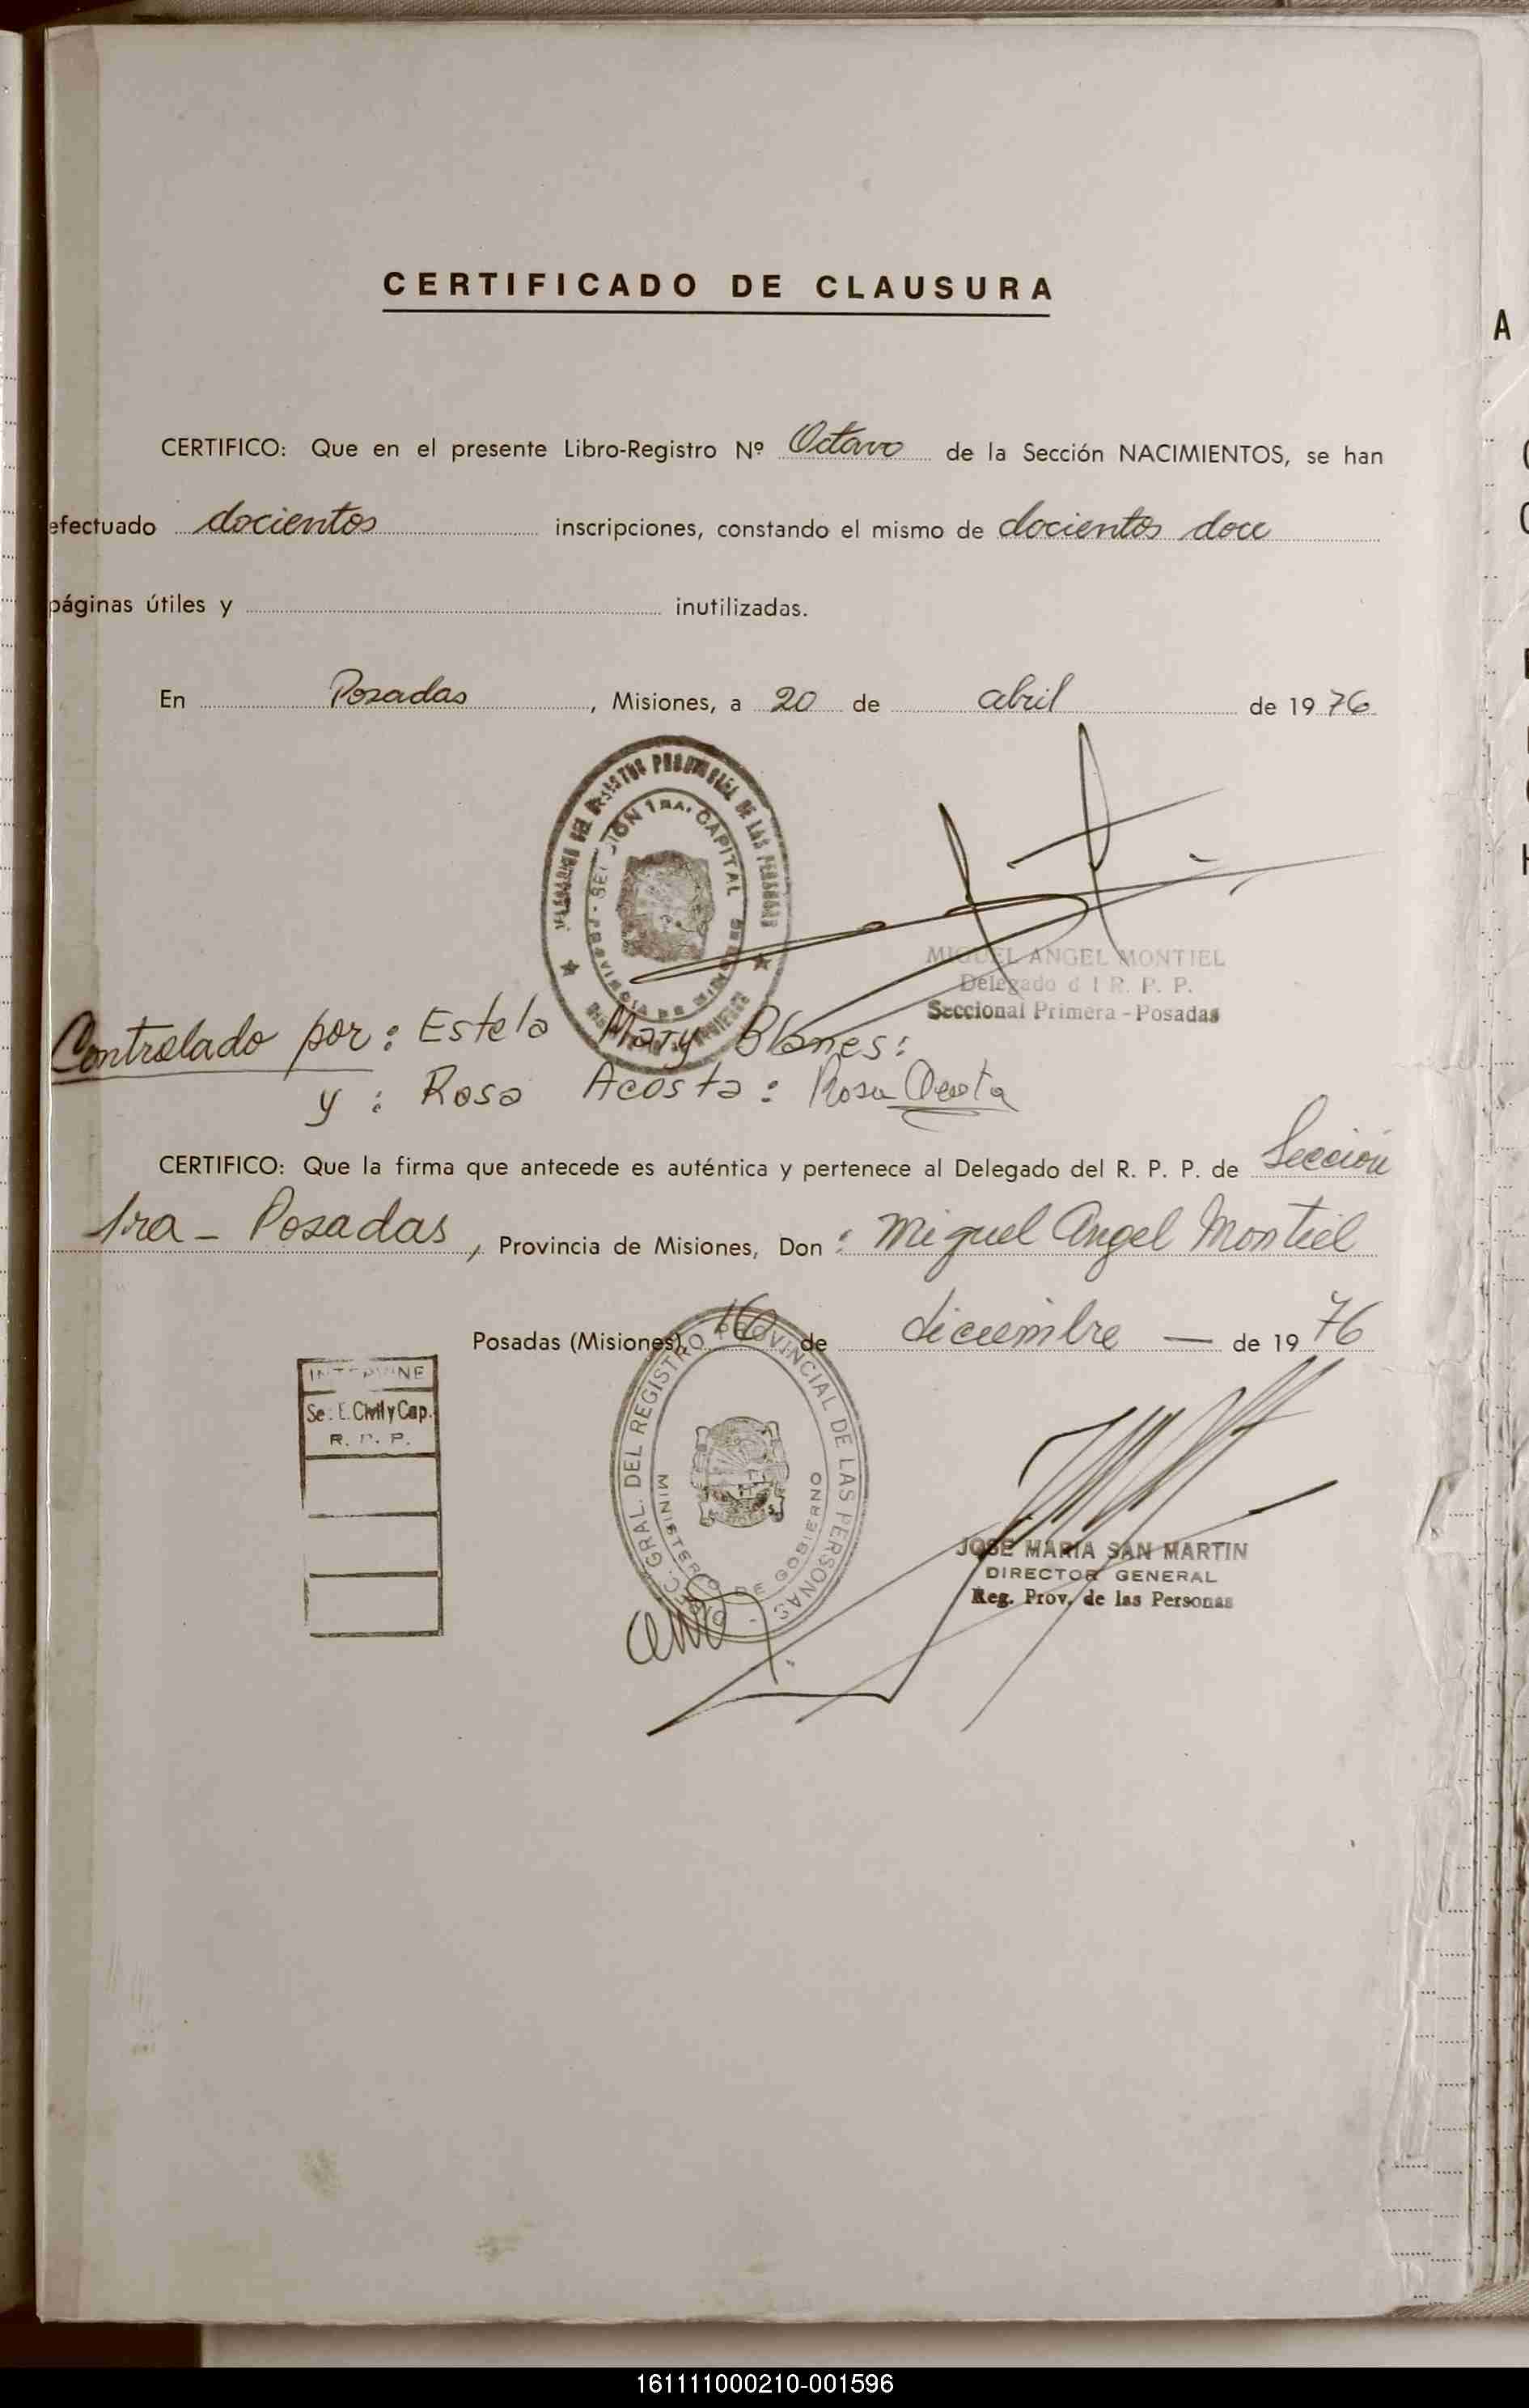 CERTIFICADO DE CLAUSURA
A
CERTIFICO: Que en el presente Libro-Registro Nº Octavo de la Sección NACIMIENTOS, se han
efectuado docientos inscripciones, constando el mismo de docientos doce
páginas útiles y inutilizadas.
En Posadas, Misiones, a 20 de abril de 1976
DEL REGISTRO PROVINCIAL DE LAS PERSONAS
SECCION 1RA. CAPITAL
PROVINCIA DE MISIONES
MIGUEL ANGEL MONTIEL
Delegado d l R. P. P.
Seccional Primera - Posadas
Controlado por: Estela Mary Blanes:
y: Rosa Acosta: Rosa Acosta
CERTIFICO: Que la firma que antecede es auténtica y pertenece al Delegado del R. P. P. de Sección
1ra - Posadas, Provincia de Misiones, Don: Miguel Angel Montiel
Posadas (Misiones), 16 de diciembre — de 1976
INTERVINE
Se. E. Civil y Cap.
R. P. P.
GRAL. DEL REGISTRO PROVINCIAL DE LAS PERSONAS
MINISTERIO DE GOBIERNO
JOSE MARIA SAN MARTIN
DIRECTOR GENERAL
Reg. Prov. de las Personas
161111000210-001596